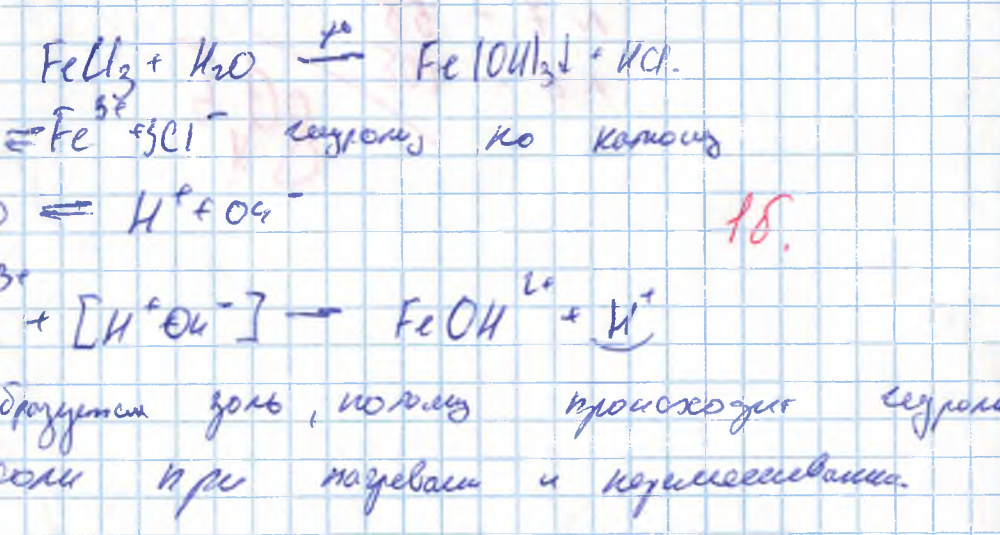 FeCl₃ + H₂O $\xrightarrow{t°}$ Fe(OH)₃↓ + HCl.
⇌ Fe³⁺ + 3Cl⁻ гидролиз по катиону
⇌ H⁺ + OH⁻
1б.
3+ + [H⁺OH⁻] — FeOH²⁺ + H⁺
бразуется золь, потому происходит гидроли
соли при нагреван и перемешивании.